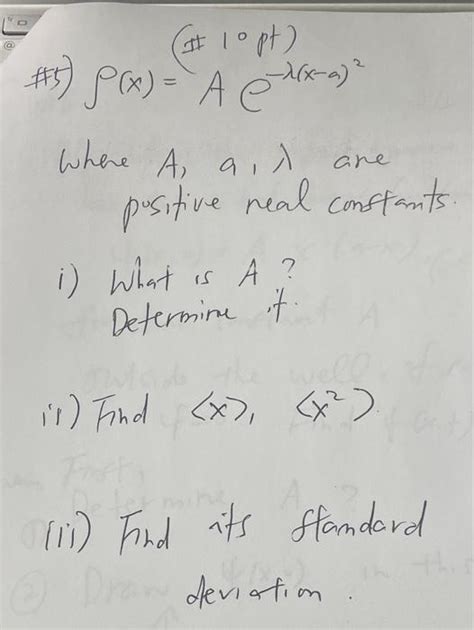 (# 10 pt)
#5) ρ(x) = A e^{-λ(x-a)^2}
where A, a, λ are
positive real constants.
i) What is A ?
Determine it.
ii) Find <x>, <x²>.
iii) Find its standard
deviation.